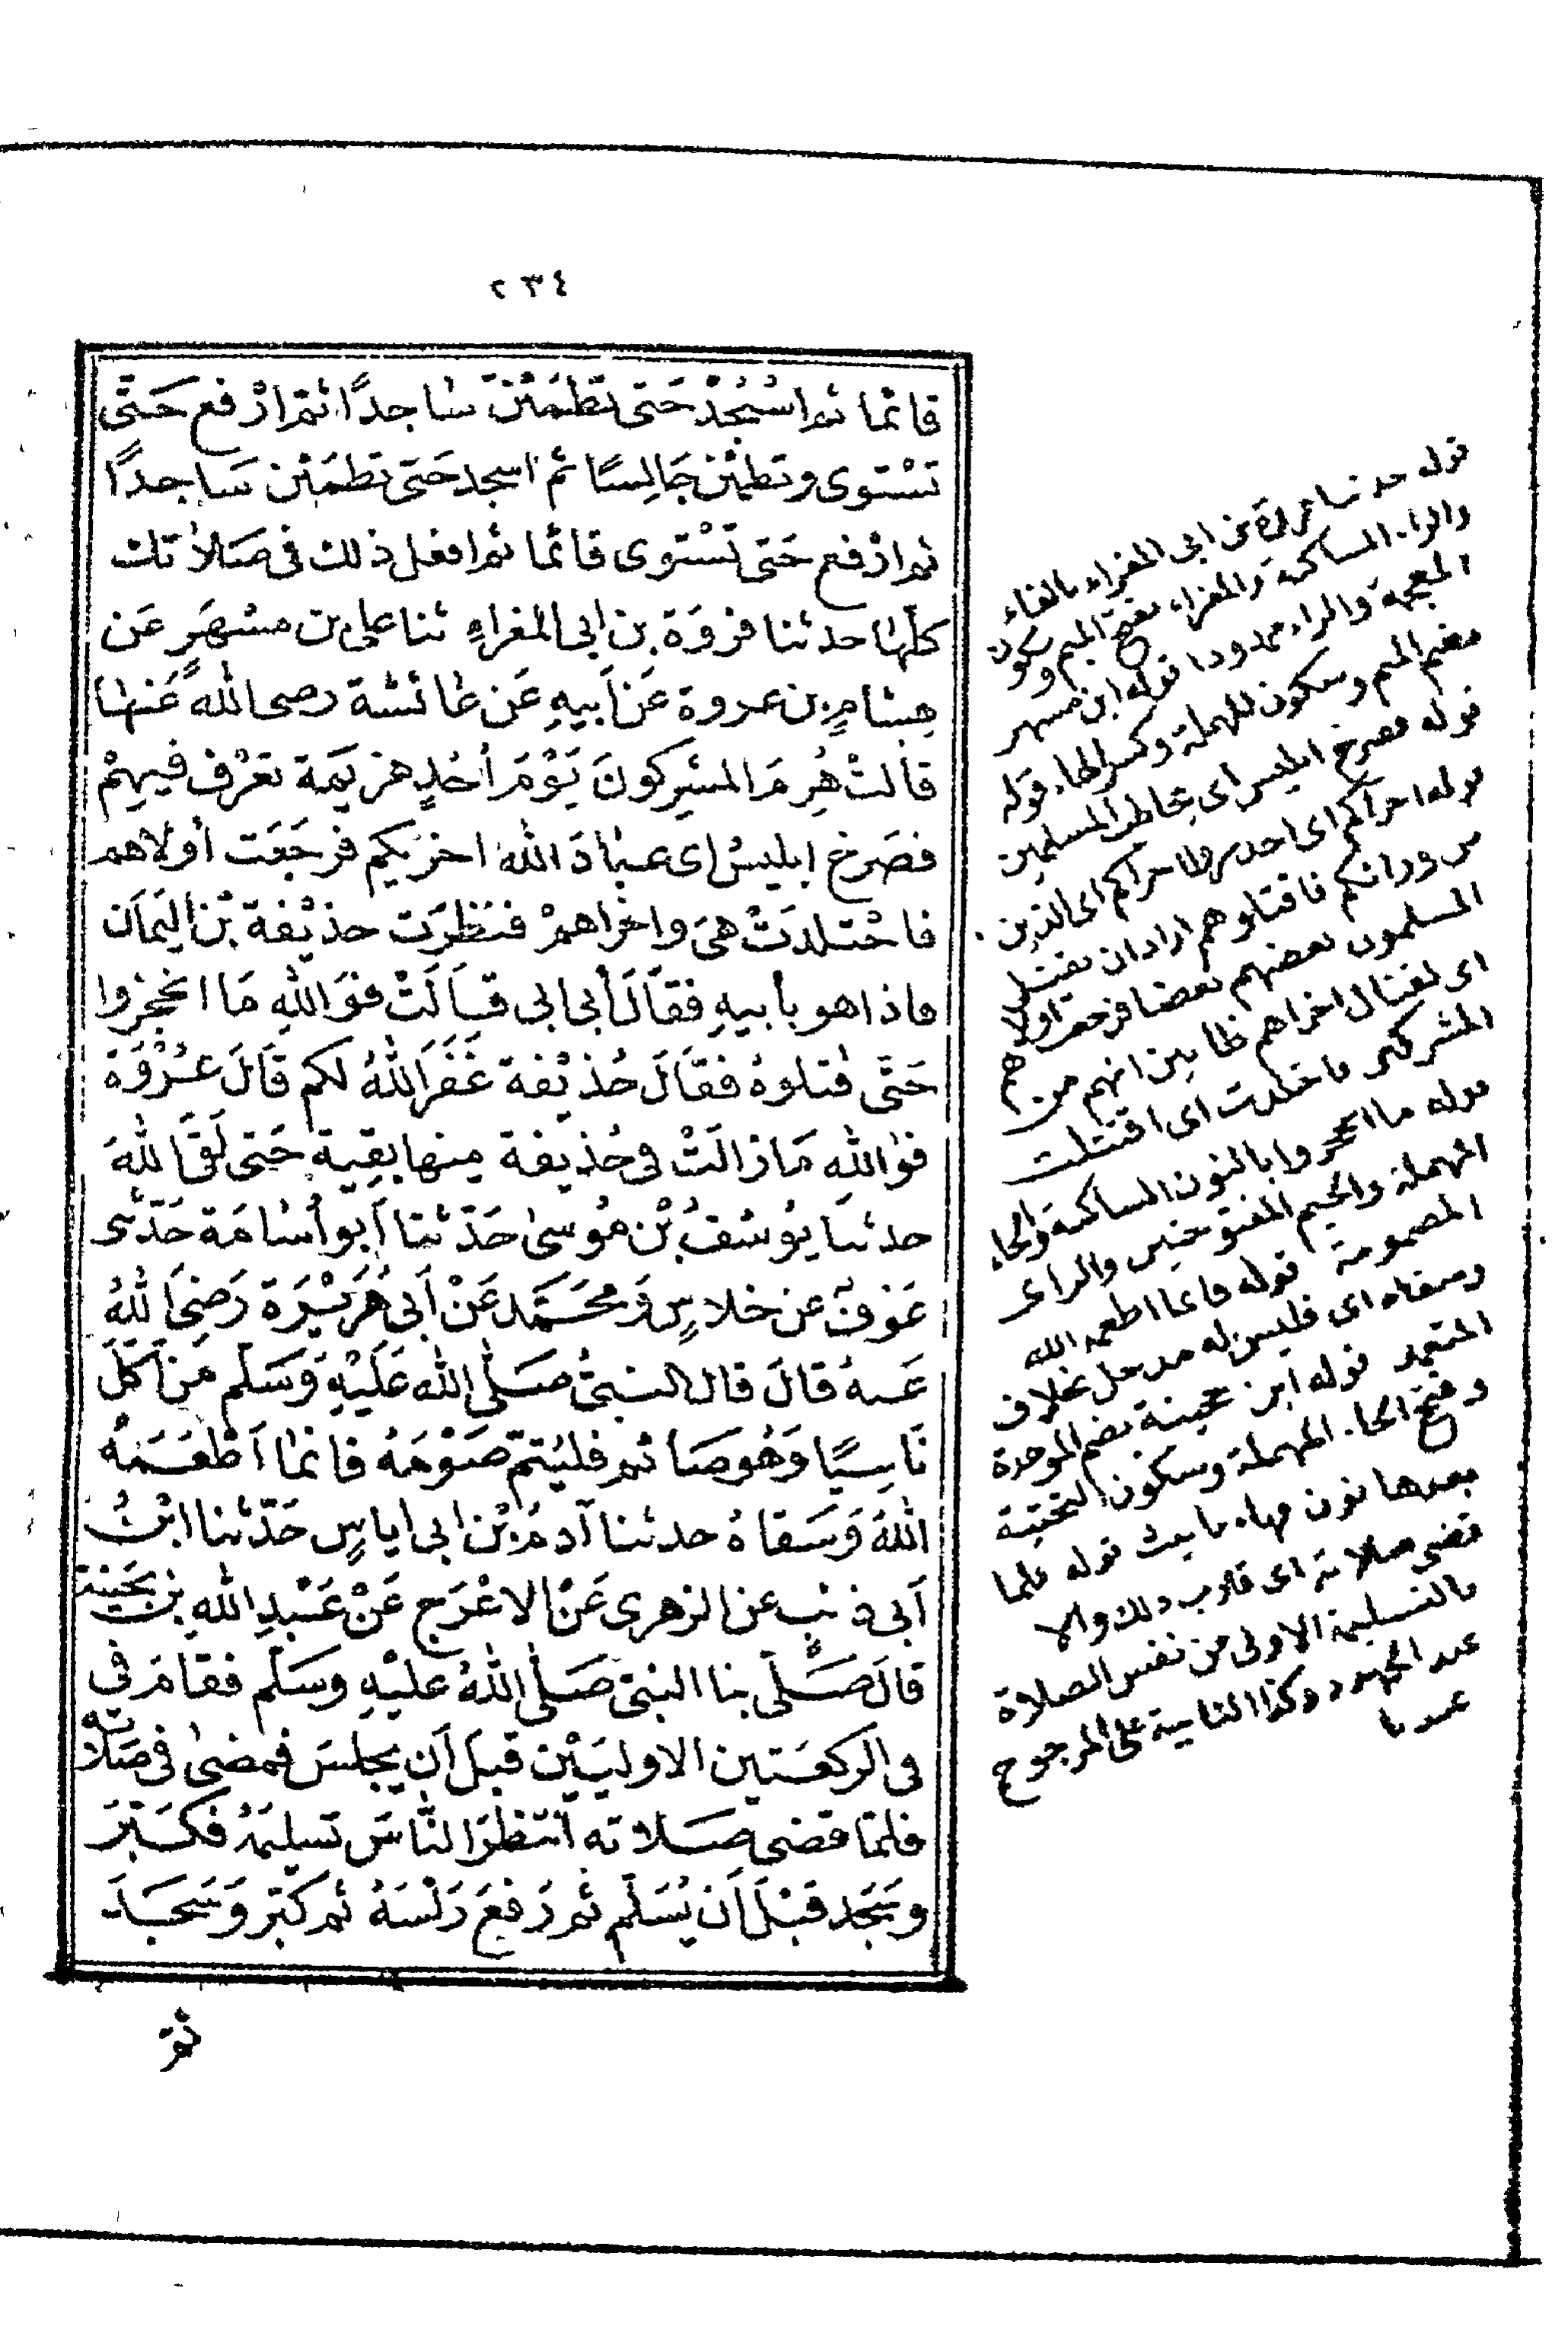 ٢٣٤
قائما ثم اسْجُدْ حَتى تَطْمَئنَّ سَاجدًا ثم ارْفع حَتّى
تَسْتوى وتطمئن جَالِسًا ثم اسجد حَتى تطمَئن سَاجدًا
ثم ارْفع حَتى تَسْتوى قائما ثم افعل ذلك فى صَلاتك
كلّها حدثنا فرْوَة بن ابى المغراءِ ثنا على بن مسْهَرٍ عَن
هِشامِ بن عروة عَن اَبيهِ عَن عائشة رضى اللهُ عَنها
قالتْ هُزِمَ المشركونَ يَوْمَ أُحُدٍ هزيمة تعْرف فيهِمْ
فصَرخ إبليسُ اى عبَادَ الله اخرَيكم فرجَعَت أولاهم
فاجْتلدَتْ هىَ واخراهمْ فنَظرَت حذيْفة بْن اليَمان
فاذا هو بأبيهِ فقَالَ أبى ابى قَالَتْ فوَاللهِ مَا انحجزوا
حَتَّى قتلوهُ فقَالَ حُذيْفة غَفَرَ اللهُ لكم قَالَ عُرْوَة
فوَاللهِ مَازالَتْ فى حُذيفة منها بقِية حَتى لَقىَ اللهَ
حدثنا يوُسُفُ بْن مُوسىٰ حَدّثنا اَبو أُسامَة حَدّثنى
عَوْفٌ عن خلاسٍ وَمحَمَّد عَنْ اَبى هُرَيْرَة رَضِىَ اللهُ
عَنهُ قالَ قال النبىُّ صَلَّى الله عَلَيْهِ وَسَلّم مَن اَكَلَ
نَاسِيًا وَهُو صَائم فليُتمّ صَوْمَهُ فانما اَطْعَمَهُ
اللهُ وَسَقاهُ حدثنا آدمُ بْن ابى اياسٍ حَدّثنا ابْنُ
اَبى ذئب عن الزهرى عَن الاعْرَج عَنْ عَبْدِ اللهِ بن بُحَيْنَة
قالَ صَلّى بنا النبىّ صَلَّى اللهُ عليْهِ وسَلّم فقامَ فى
فى الركعَتين الاوليَيْن قبلَ اَن يجلسَ فمضىٰ فى صَلاته
فلمّا قضى صَلاته انتظرَ النَّاسَ تسليمَهُ فكَبّرَ
وسَجَد قبْلَ اَن يُسَلّم ثم رَفعَ رَاْسَهُ ثم كبّر وَسَجَدَ
ثم
قوله حدثنا فروة بن ابى المغراء بالفاء
والراء الساكنة والمغراء بفتح الميم وسكون
المعجمة والراء ممدودا قوله ابن مسهر
بضم الميم وسكون المهملة وكسر الهاء قوله
قوله فصرخ ابليس اى يخاطب المسلمين
قوله اخراكم اى احذروا اخراكم اى الذين
من ورائكم فاقتلوهم اراد ان يقتل
المسلمون بعضهم بعضا فرجعت اولاهم
اى لقتال اخراهم ظانين انهم من
المشركين فاجتلدت اى اقتتلت
قوله ما انحجزوا بالنون الساكنة والحاء
المهملة والجيم المفتوحتين والزاى
المضمومة قوله فانما اطعمه الله
وسقاه اى فليس له مدخل بخلاف
المتعمد قوله ابن بحينة بضم الموحدة
وفتح الحاء المهملة وسكون التحتية
بعدها نون فهاء تانيث قوله فلما
قضى صلاته اى قارب ذلك والا
فالتسليمة الاولى من نفس الصلاة
عند الجمهور وكذا الثانية على المرجوح
عندنا